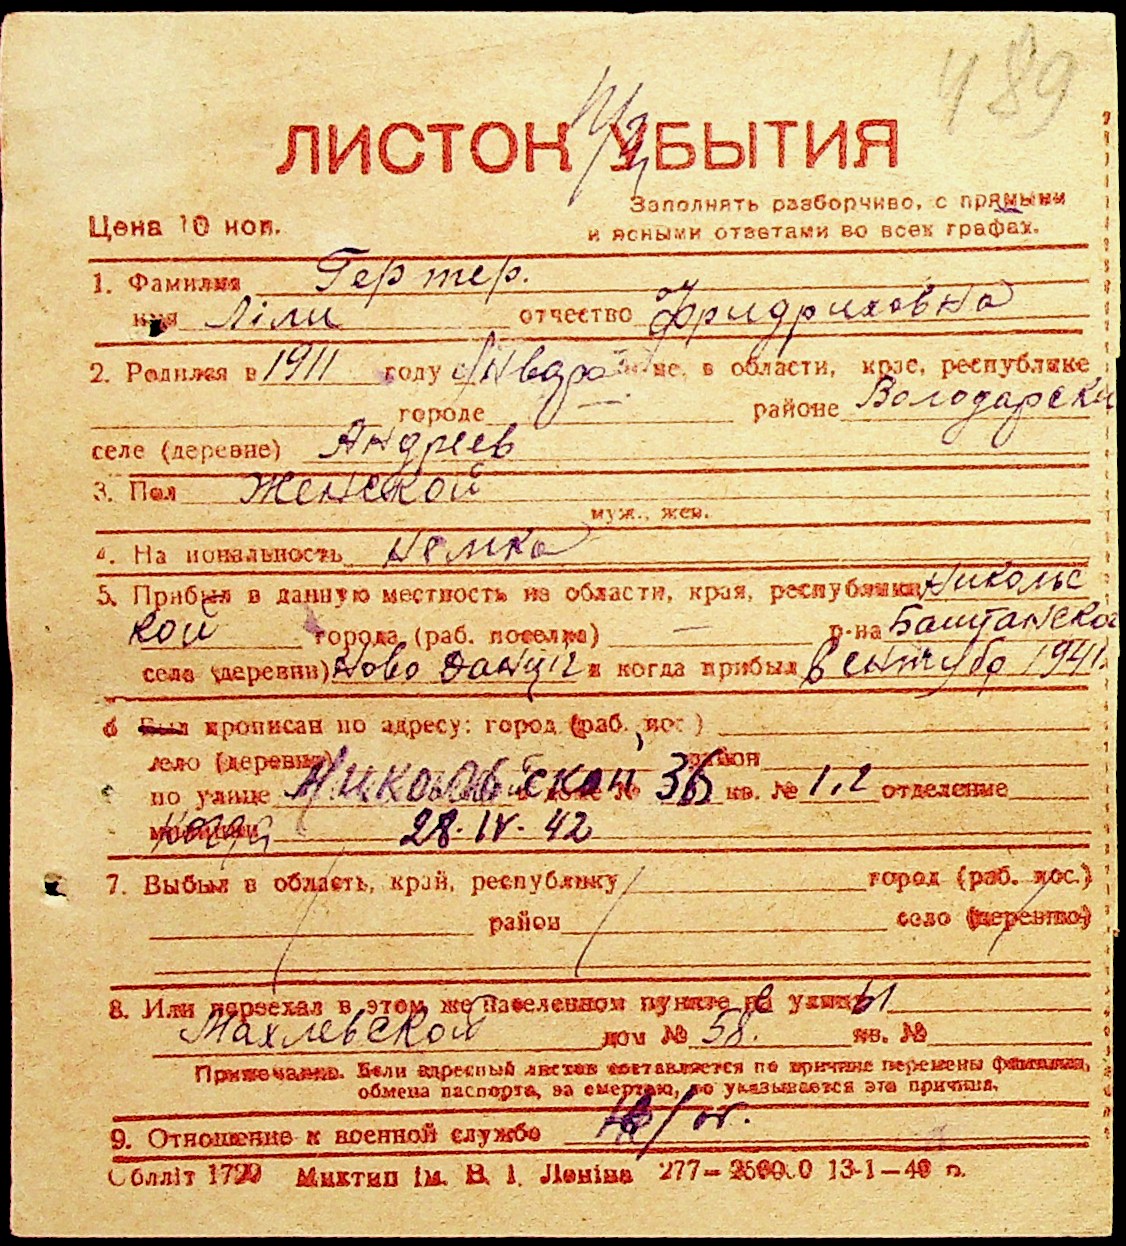 489
ЛИСТОК УБЫТИЯ
Заполнять разборчиво, с прямыми
Цена 10 коп.
и ясными ответами во всех графах.
1. Фамилия Гертер.
имя Ліли отчество Фридриховна
2. Родился в 1911 году Января м-це, в области, крае, республике
городе — районе Володарски
селе (деревне) Андреев
3. Пол Женской
муж., жен.
4. Национальность Немка
5. Прибыл в данную местность из области, края, республики Николаевс
кой города (раб. поселка) — р-на Баштанског
села (деревни) Ново Данциг и когда прибыл в сентябр 1941
6 Был прописан по адресу: город (раб. пос.)
село (деревня) район
по улице Николаевской в доме № 36 кв. № 1.2 отделение
милиции когда 28.IV.42
7. Выбыл в область, край, республику город (раб. пос.)
район село (деревню)
8. Или переехал в этом же населенном пункте на улицы
Махлевской дом № 58. кв. №
Примечание. Если адресный листок составляется по причине перемены фамилии,
обмена паспорта, за смертью, то указывается эта причина.
9. Отношение к военной службе н/от.
Облліт 1729 Миктип ім. В. І. Леніна 277— 13-1—40 г.